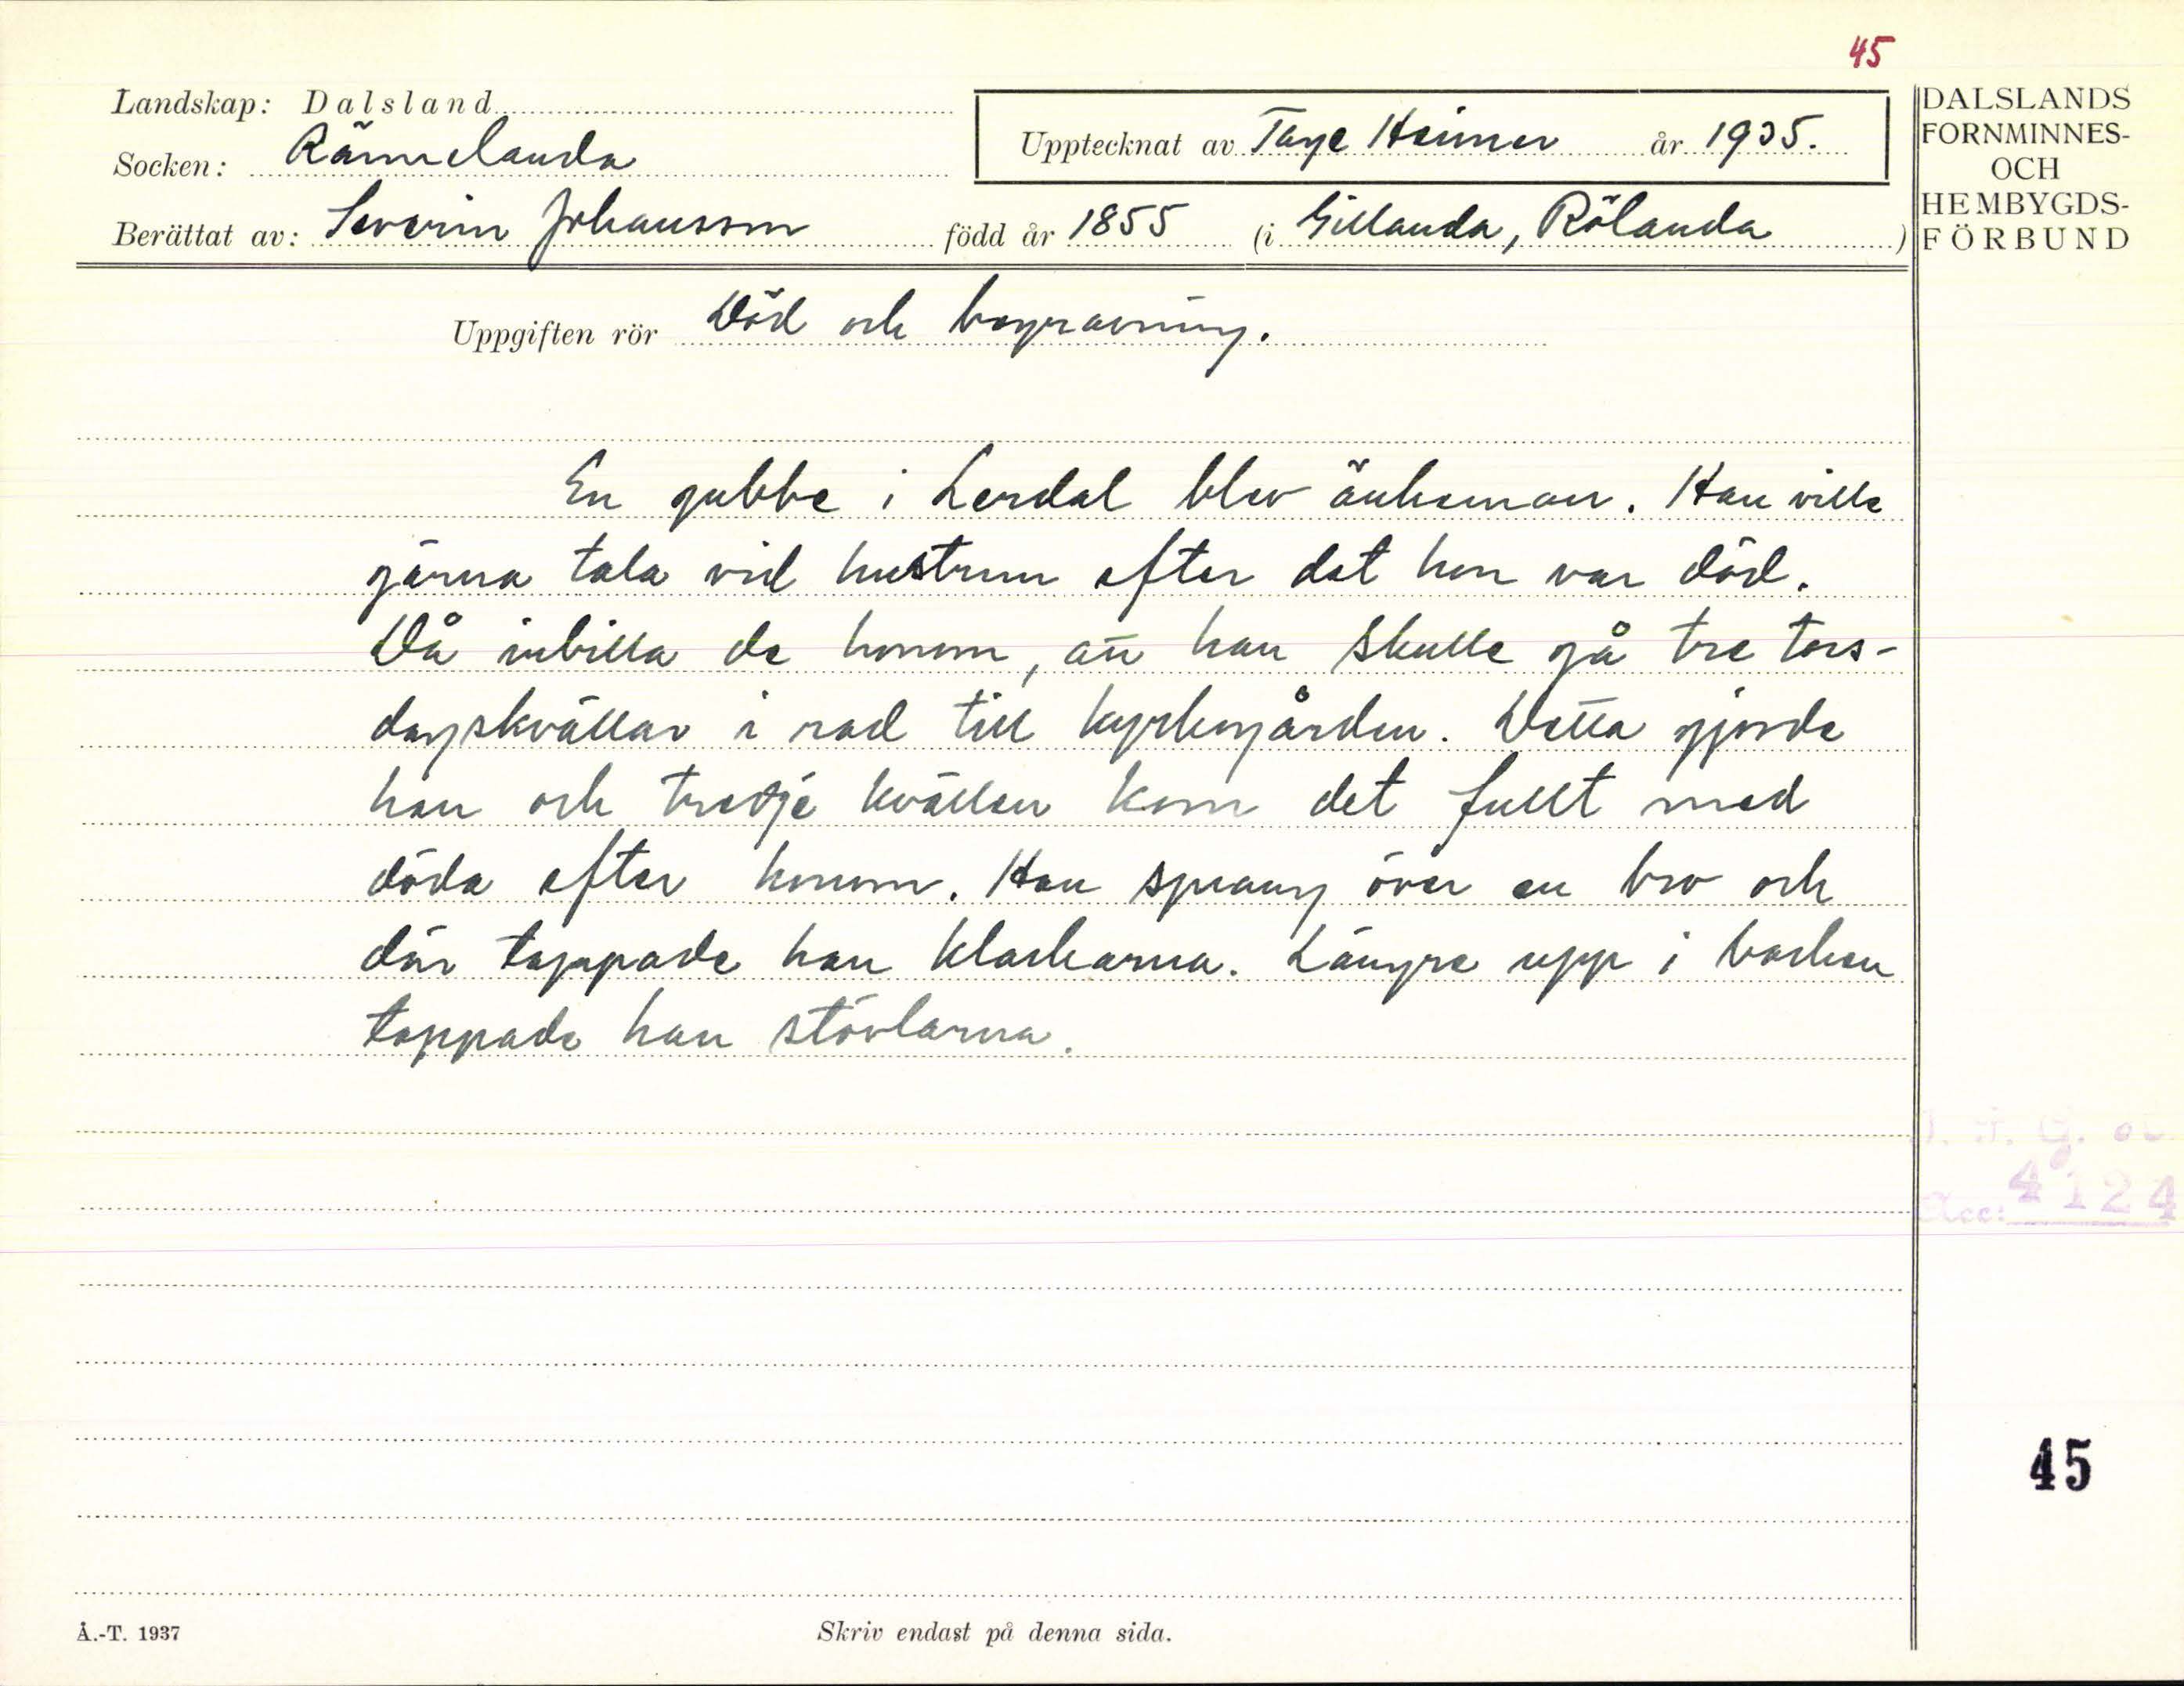 45
Landskap: Dalsland
Socken: Rännelanda
Upptecknat av Tage Heimer år 1935.
Berättat av: Severin Johansson född år 1855 (i Gillanda, Rölanda)
DALSLANDS
FORNMINNES-
OCH
HEMBYGDS-
FÖRBUND
Uppgiften rör Död och begravning.
En gubbe i Lerdal blev änkeman. Han ville
gärna tala vid hustrun efter det hon var död.
Då inbilla de honom, att han skulle gå tre tors-
dagskvällar i rad till kyrkogården. Detta gjorde
han och tredje kvällen kom det fullt med
döda efter honom. Han sprang över en bro och
där tappade han klackarna. Längre upp i backen
tappade han stövlarna.
Acc: 4124
45
Å.-T. 1937
Skriv endast på denna sida.